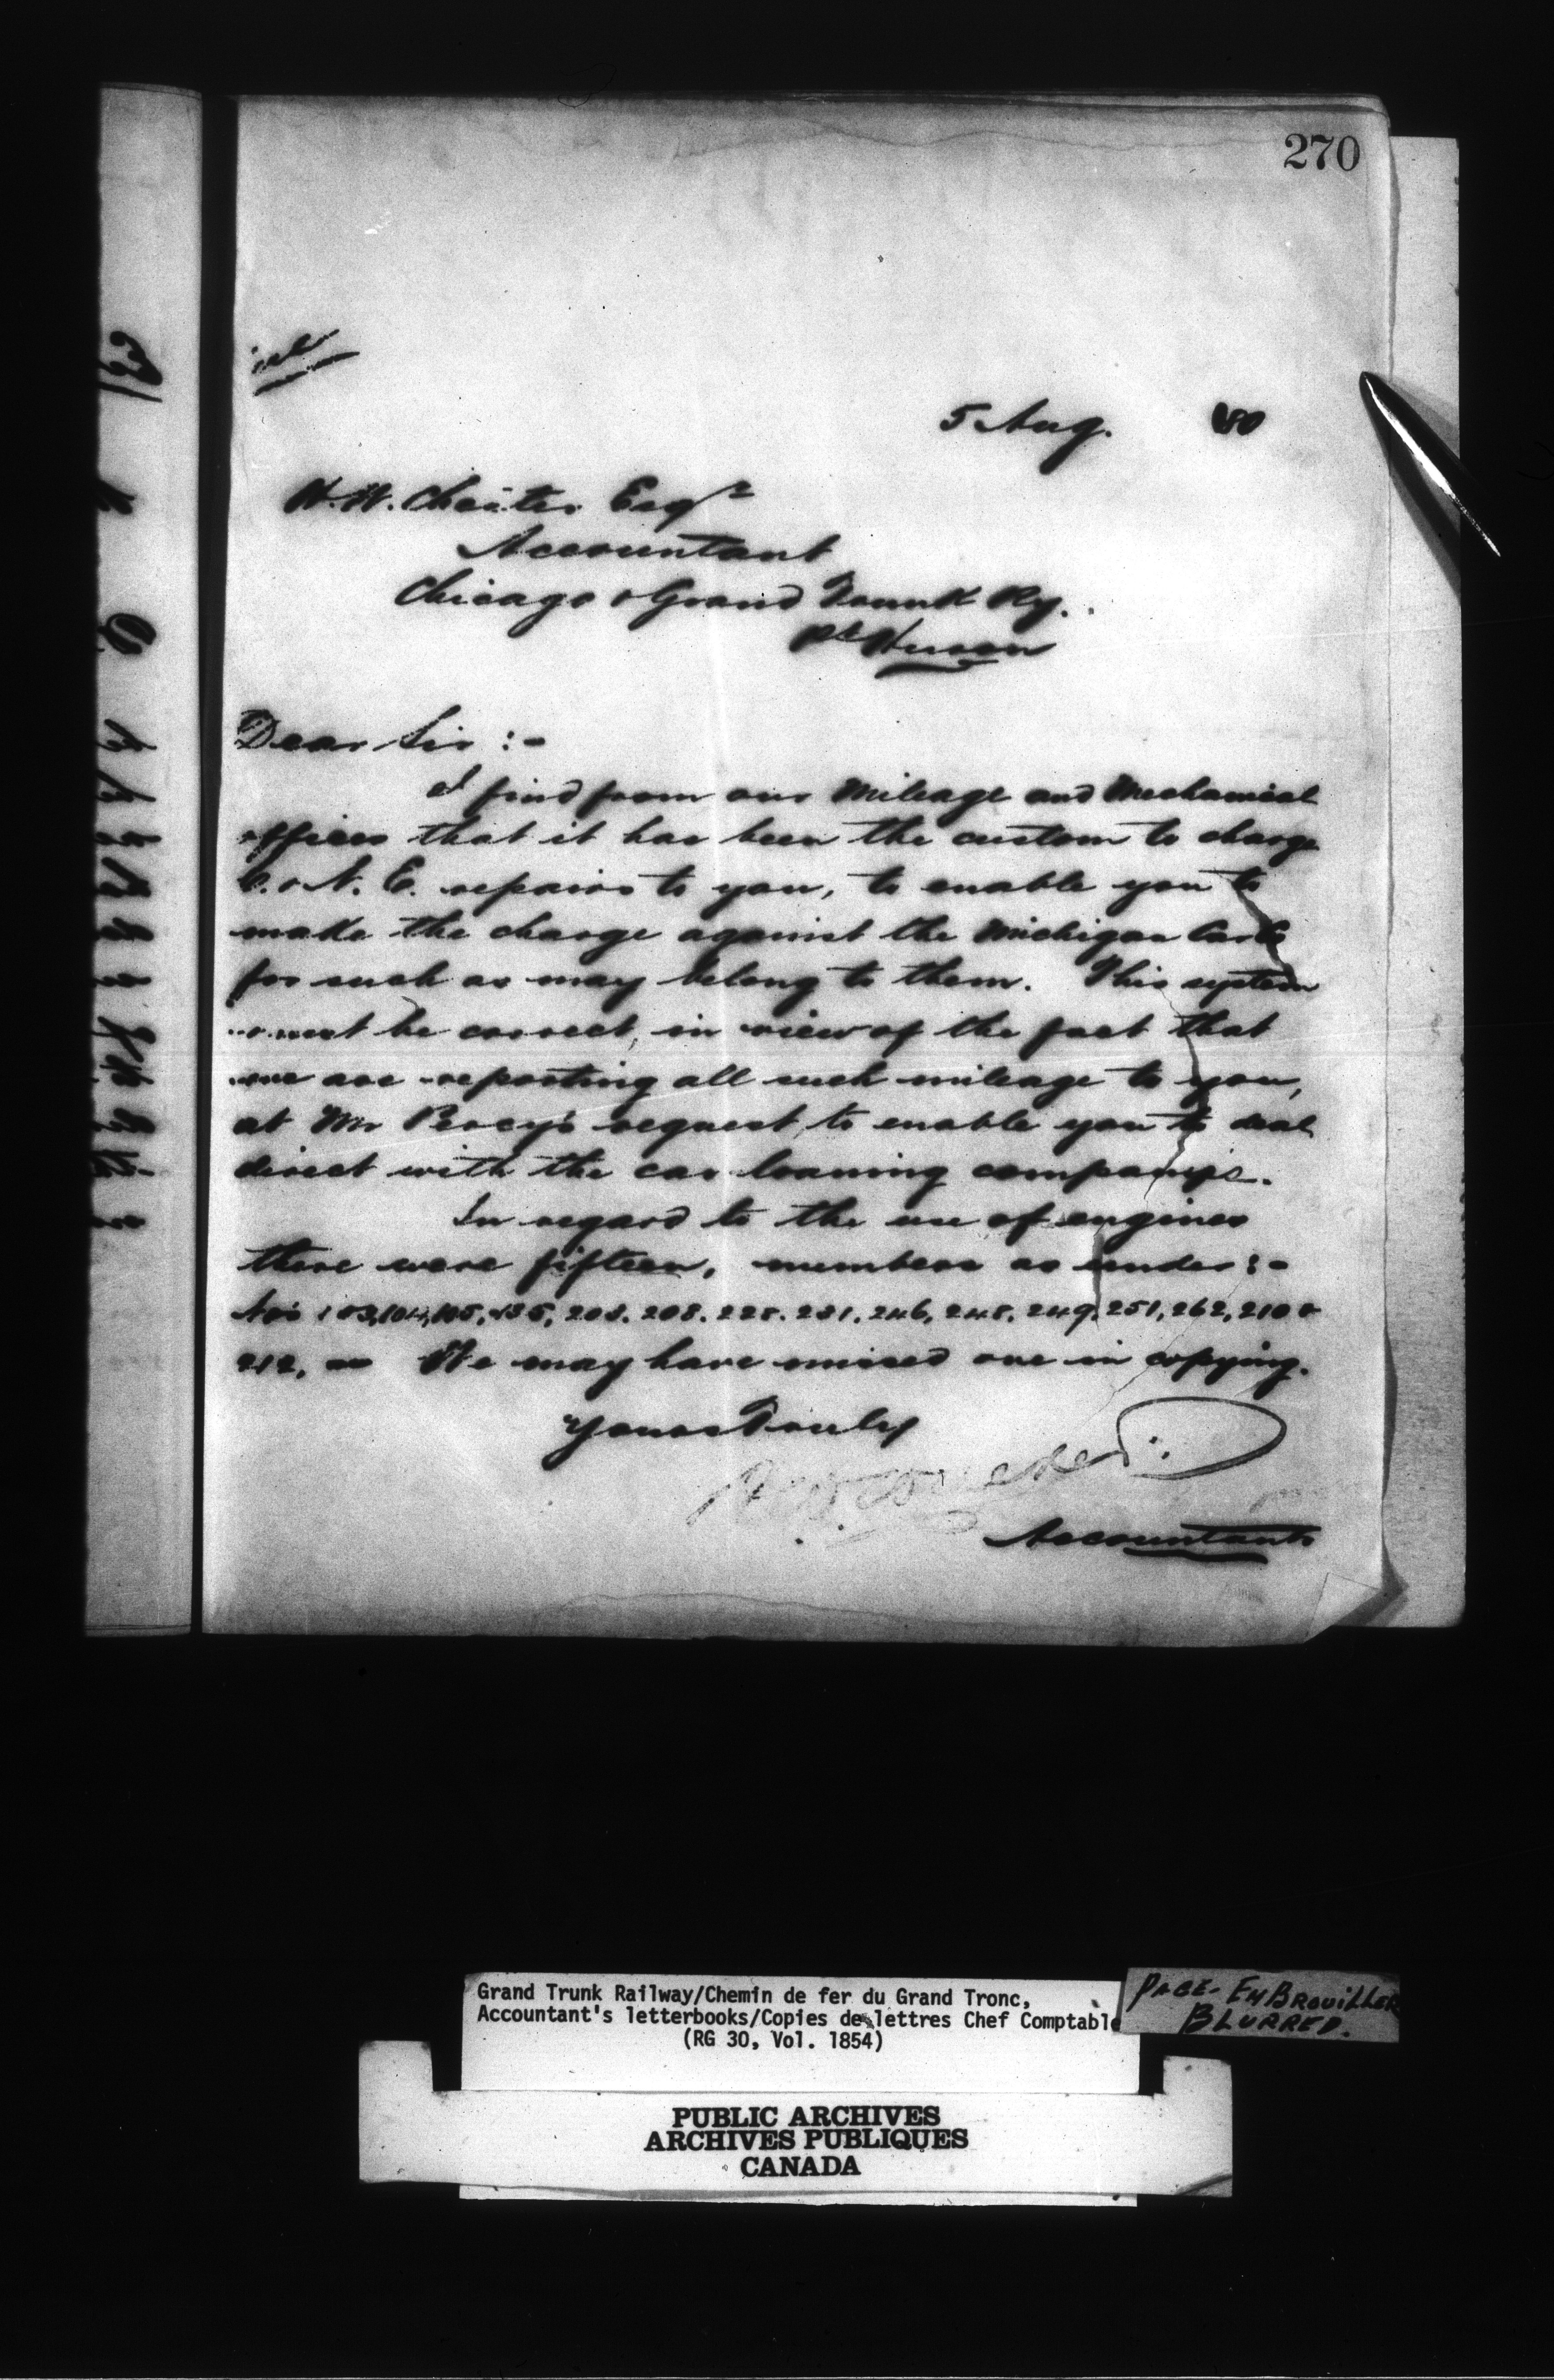 270
5 Aug. 80
W. W. Chester Esqr
Accountant
Chicago & Grand Trunk Ry.
Pt Huron
Dear Sir :-
I find from our Mileage and Mechanical
offices that it has been the custom to charge
C. & N. E. repairs to you, to enable you to
make the charge against the Michigan Cars
for such as may belong to them. This system
must be correct, in view of the fact that
we are reporting all such mileage to you,
at Mr Percy's request, to enable you to deal
direct with the car loaning companys.
In regard to the use of engines
there were fifteen, numbers as under :-
Nos 103, 104, 105, 135, 203. 208. 228. 231. 246, 248. 249. 251, 262, 210 &
212. We may have missed one in copying.
Yours Truly
Accountant
Grand Trunk Railway/Chemin de fer du Grand Tronc,
Accountant's letterbooks/Copies de lettres Chef Comptable
(RG 30, Vol. 1854)
PAGE - EMBROUILLER
BLURRED.
PUBLIC ARCHIVES
ARCHIVES PUBLIQUES
CANADA